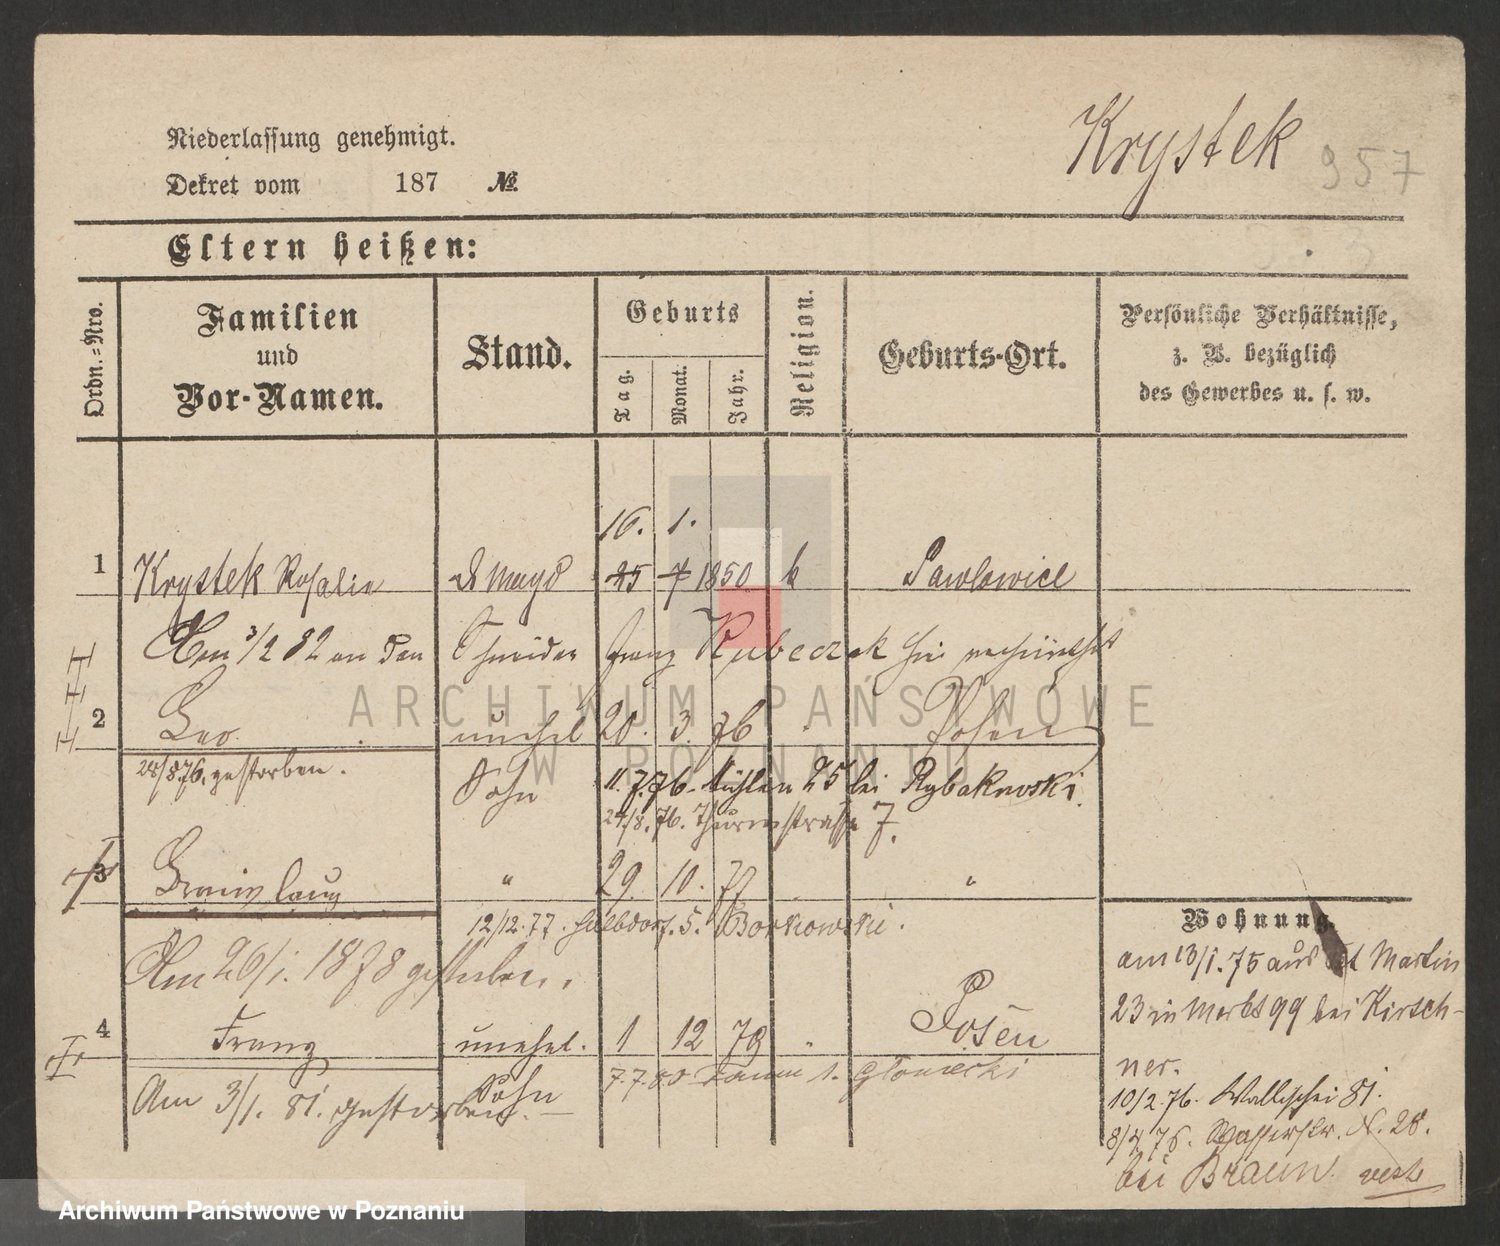 Krystek 957
Niederlassung genehmigt.
Dekret vom 187 №
Eltern heißen:
Ordn.=Nro.
Familien
und
Vor-Namen.
Stand.
Geburts
Tag.
Monat.
Jahr.
Religion.
Geburts-Ort.
Persönliche Verhältnisse,
z. B. bezüglich
des Gewerbes u. s. w.
16. 1.
1 Krystek Rosalie d Magd 25 7 1850 k Pawlowice
Am 3/2 82 an den Schneider Franz Kubeczak hier
2 Leo unehel 20. 3. 76 Posen
Sohn
28/8 76. gestorben.
11.7.76. Mühlen 25 bei Rybakowski.
24/8. 76. Thurmstrasse 7.
3 " 29. 10. 77 "
12/12.77. Halbdorf. 5. Borkowski.
Am 26/1. 1878 gestorben.
4 Franz unehel. 1 12 79 Posen
Sohn
7.7.80
Am 3/1. 81. gestorben.
Wohnung.
am 13/1.75 aus St Martin
23 in Markt 99 bei Kirsch-
ner.
10/2.76. Wallischei 81.
8/4 76. Wasserstr. N. 28.
bei Braun.
ARCHIWUM PAŃSTWOWE
W POZNANIU
Archiwum Państwowe w Poznaniu